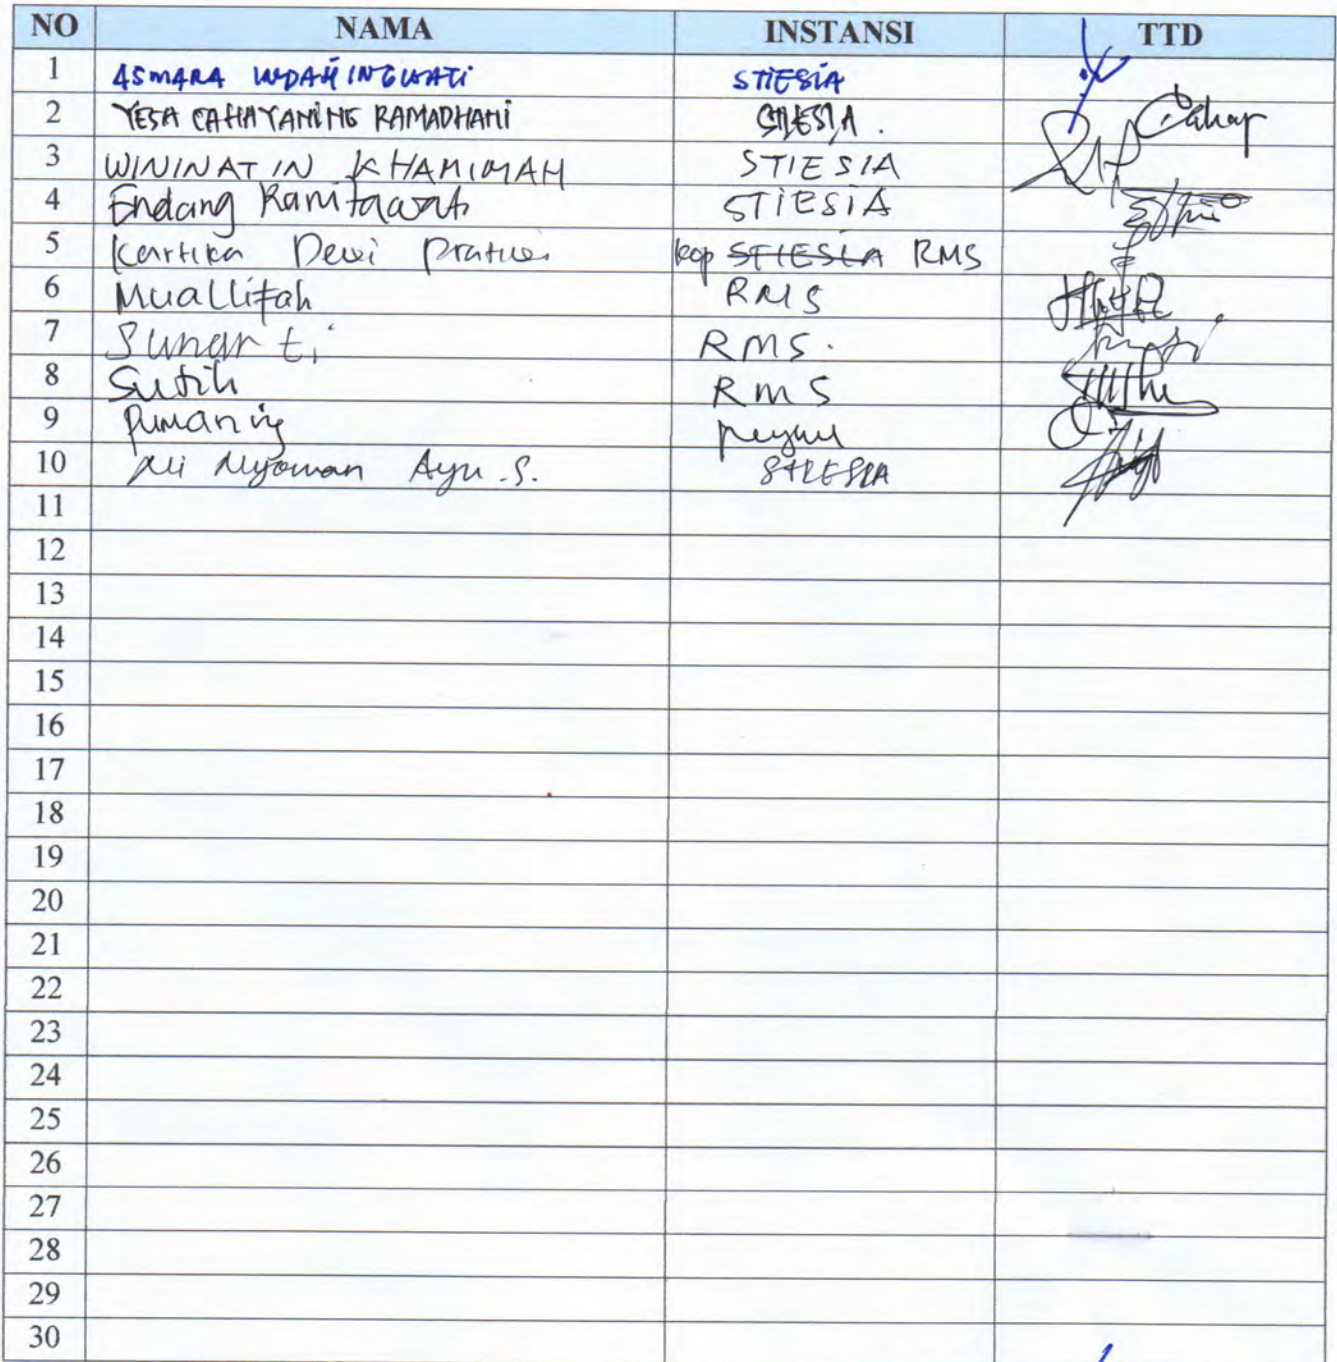 NO NAMA INSTANSI TTD
1 ASMARA INDAHINGWATI STIESIA
2 YESA CAHAYANING RAMADHANI STIESIA. Cahay
3 WININATIN KHAMIMAH STIESIA
4 Endang Ranitawati STIESIA
5 Kartika Dewi Pratiwi kop STIESIA RMS
6 Muallifah RMS
7 Sunarti RMS.
8 Sutih RMS
9
10 Ni Nyoman Ayu .S. STIESIA
11
12
13
14
15
16
17
18
19
20
21
22
23
24
25
26
27
28
29
30